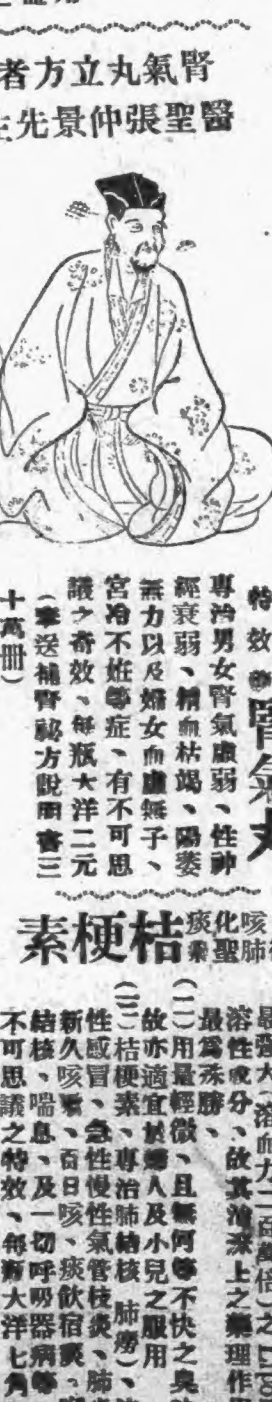 腎氣丸立方者
醫聖張仲景先生
特效
腎氣丸
專治男女腎氣虛弱、性神
經衰弱、精血枯竭、陽萎
無力以及婦女血虛無子、
宮冷不姙等症、有不可思
議之奇效、每瓶大洋二元
(奉送補腎祕方說明書三
十萬冊)
咳肺
化聖
痰藥
桔梗素
最強大、溶血力二百萬倍)之
溶性成分、故其治療上之藥理作用
最爲殊勝、
(二)用量輕微、且無何等不快之臭
故亦適宜於婦人及小兒之服用
(三)桔梗素、專治肺結核(肺癆)、
性感冒、急性慢性氣管枝炎、肺
新久咳嗽、百日咳、痰飲宿痰、
結核、喘息、及一切呼吸器病等
不可思議之特效、每瓶大洋七角